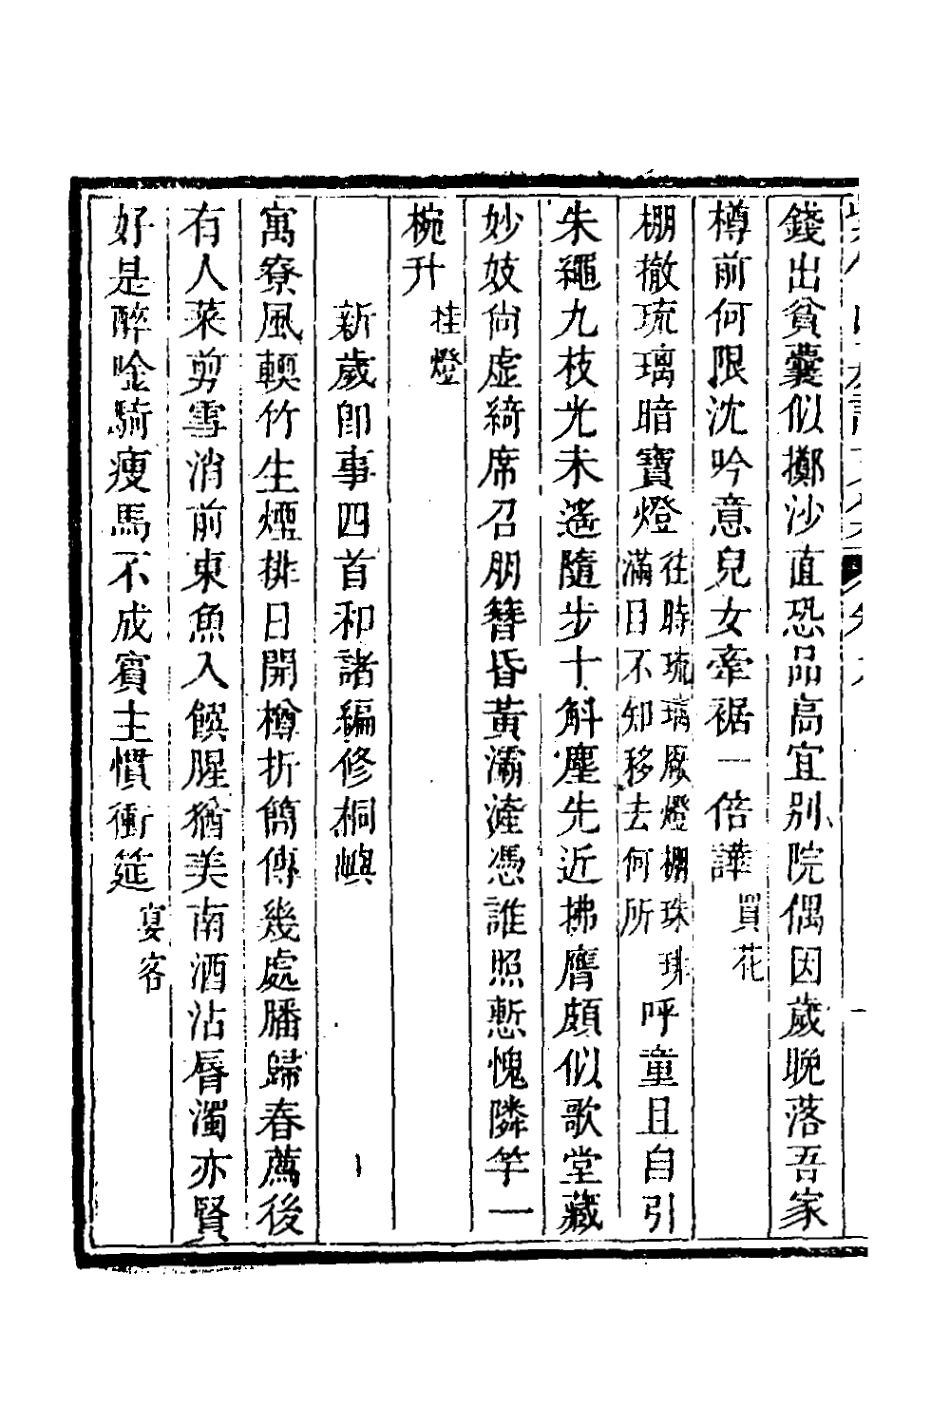 錢出貧囊似擲沙直恐品高宜別院偶因歲晚落吾家
樽前何限沈吟意兒女牽裾一倍譁買花
棚撤琉璃暗寶燈往時琉璃厰燈棚珠琲滿目不知移去何所呼童且自引
朱繩九枝光未遙隨步十斛塵先近拂膺頗似歌堂藏
妙妓尙虛綺席召朋簪昏黃灞滻憑誰照慙愧隣竿一
椀升挂燈
新歲卽事四首和諸編修桐嶼
寓寮風輭竹生煙排日開樽折簡傳幾處膰歸春薦後
有人菜剪雪消前東魚入饌腥猶美南酒沾脣濁亦賢
好是醉唫騎瘦馬不成賓主慣衝筵宴客